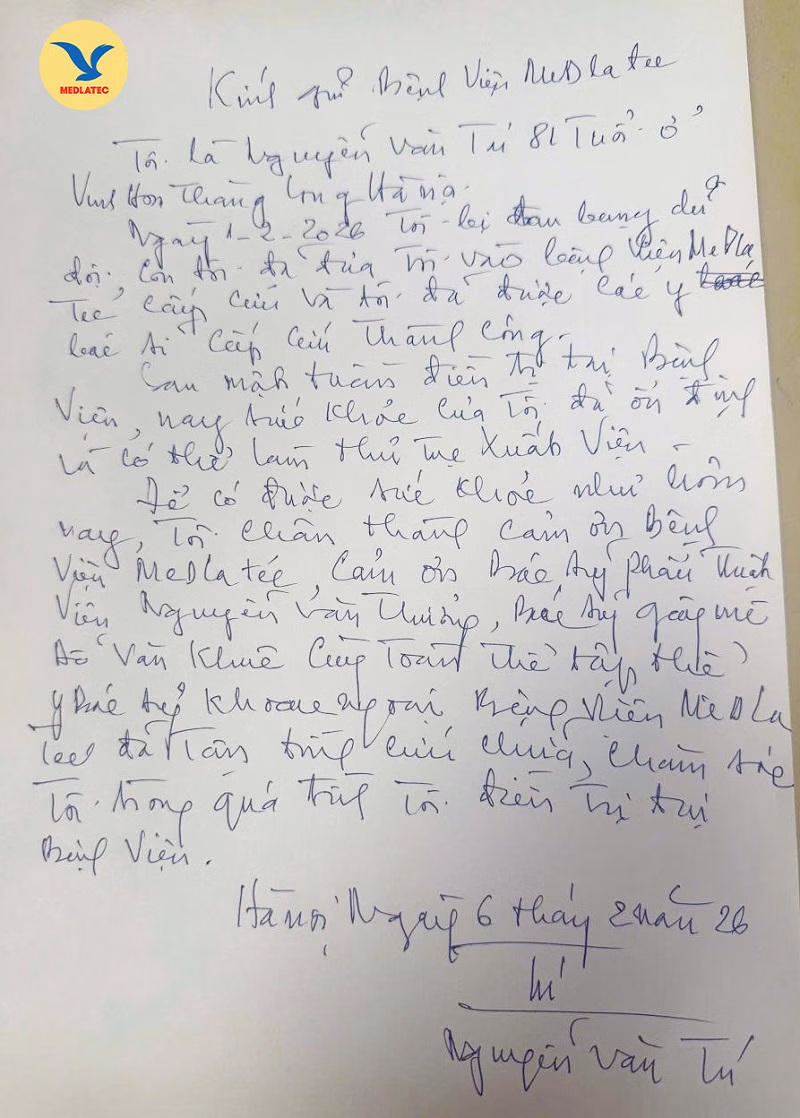 MEDLATEC
Kính gửi Bệnh Viện MeDlatec
Tôi là Nguyễn Văn Tú 81 Tuổi ở
Thăng Long Hà Nội.
Ngày 1-2-2026 Tôi bị đau bụng dữ
dội, con tôi đã đưa Tôi vào bệnh viện MeDla
Tec cấp cứu và tôi đã được các y
bác sĩ cấp cứu thành công.
Sau một tuần điều trị tại Bệnh
Viện, nay sức khỏe của Tôi đã ổn định
và có thể làm thủ tục xuất viện
Để có được sức khỏe như hôm
nay, Tôi chân thành cảm ơn Bệnh
Viện MeDlatec, cảm ơn Bác sỹ phẫu thuật
Viên Nguyễn Văn Thưởng, Bác sỹ gây mê
Đỗ Văn Khuê Cùng Toàn Thể tập thể
y Bác sỹ khoa ngoại Bệnh Viện MeDLa
Tec đã Tận tình cứu chữa, chăm sóc
Tôi trong quá trình Tôi điều Trị tại
Bệnh Viện.
Hà Nội Ngày 6 tháng 2 năm 26
Tú
Nguyễn Văn Tú